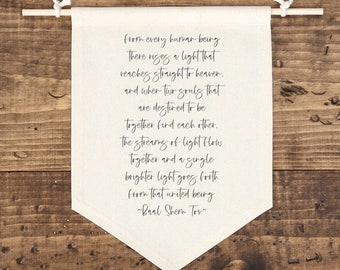 from every human being
there rises a light that
reaches straight to heaven,
and when two souls that
are destined to be
together find each other,
the streams of light flow
together and a single
brighter light goes forth
from that united being
~Baal Shem Tov~